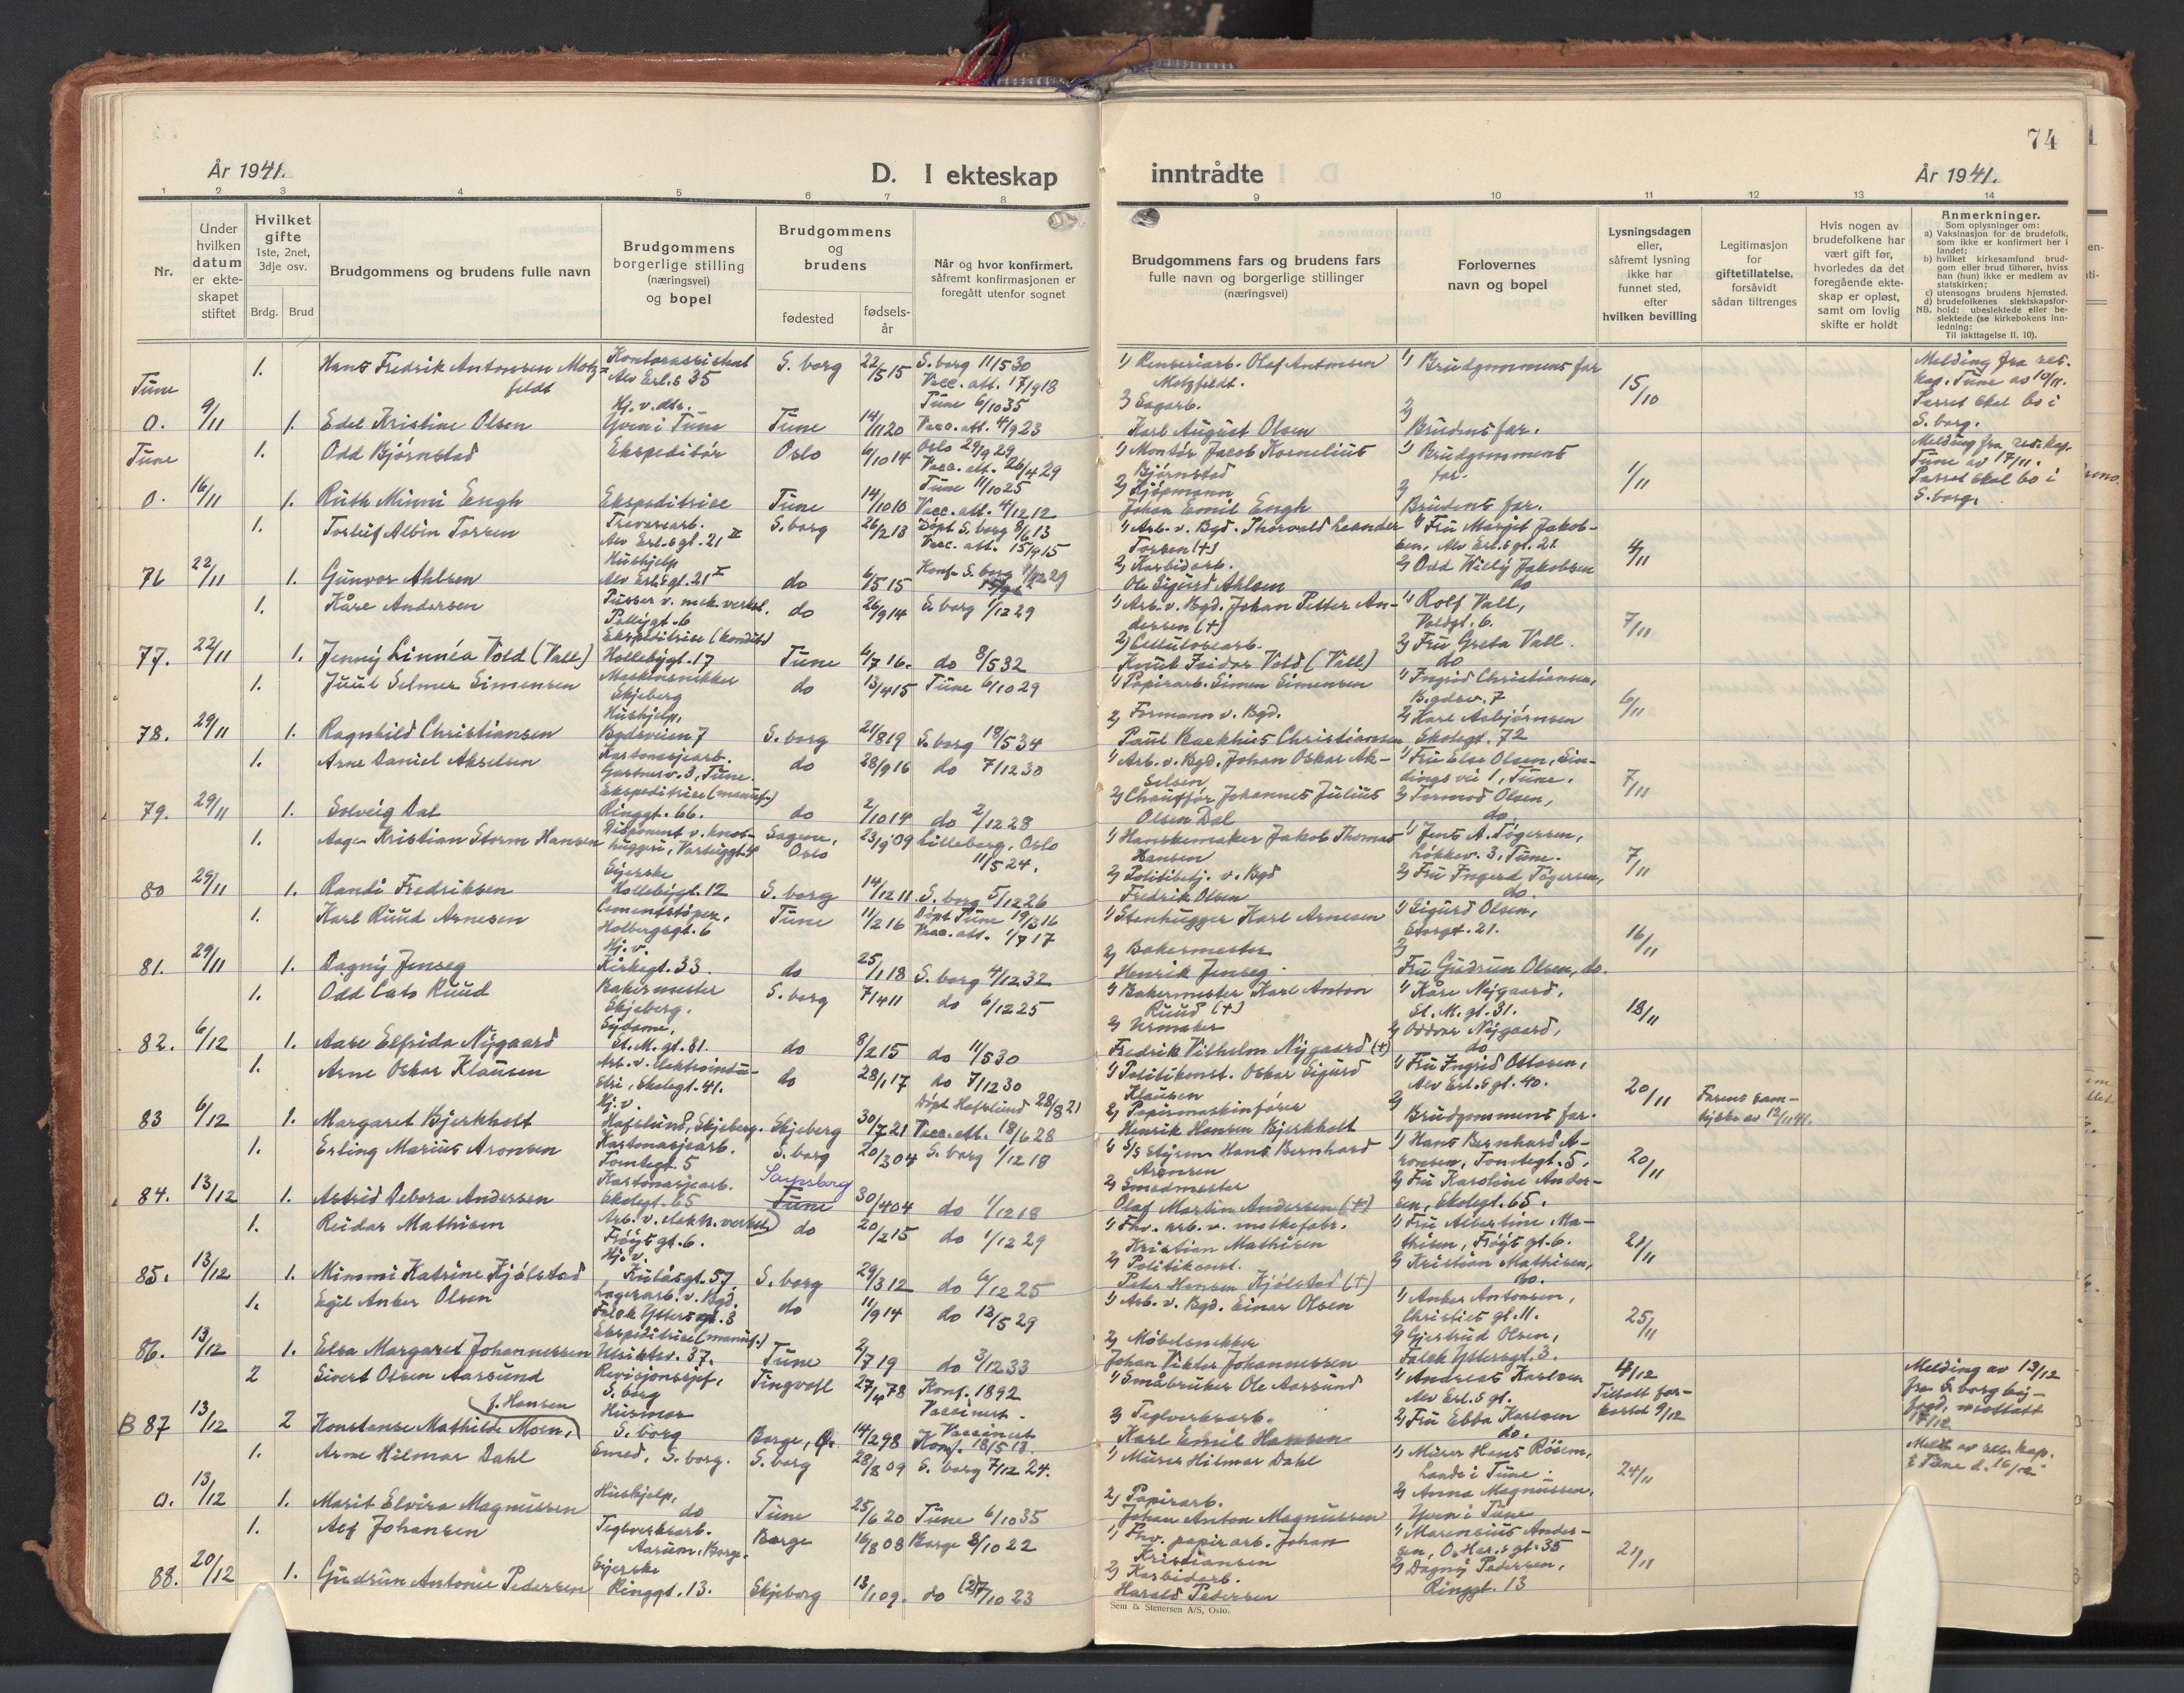 74
År 1941.
D. I ekteskap inntrådte
År 1941.
1 2 3 4 5 6 7 8 9 10 11 12 13 14
Nr.
Under hvilken datum er ekteskapet stiftet
Hvilket gifte 1ste, 2net, 3dje osv.
Brdg. Brud
Brudgommens og brudens fulle navn
Brudgommens borgerlige stilling (næringsvei) og bopel
Brudgommens og brudens
fødested
fødselsår
Når og hvor konfirmert, såfremt konfirmasjonen er foregått utenfor sognet
Brudgommens fars og brudens fars fulle navn og borgerlige stillinger (næringsvei)
Forlovernes navn og bopel
Lysningsdagen eller, såfremt lysning ikke har funnet sted, efter hvilken bevilling
Legitimasjon for giftetillatelse, forsåvidt sådan tiltrenges
Hvis nogen av brudefolkene har vært gift før, hvorledes da det foregående ekteskap er opløst, samt om lovlig skifte er holdt
Anmerkninger.
Som oplysninger om:
a) Vaksinasjon for de brudefolk, som ikke er konfirmert her i landet;
b) hvilket kirkesamfund brudgom eller brud tilhører, hviss han (hun) ikke er medlem av statskirken;
c) utensogns brudens hjemsted.
d) brudefolkenes slektskapsforhold: ubeslektede eller beslektede (se kirkebokens innledning:
NB. Til iakttagelse II. 10).
Tune 1. Hans Fredrik Antonsen Motzfeldt Kontorassistent Alv Erl.s 35 S. borg 22/5 15 S. borg 11/5 30 Vacc. att. 17/9 18 1) Renseriarb. Olaf Antonsen Motzfeldt. 1) Brudgommens far 15/10 Melding fra res. kap. Tune av 10/11. Parret skal bo i S. borg.
0. 9/11 1. Edel Kristine Olsen Hj. v. dtr. Yven i Tune Tune 14/11 20 Tune 6/10 35 Vacc. att. 4/9 23 2) Sagarb. Karl August Olsen 2) Brudens far.
Tune 1. Odd Bjørnstad Ekspeditør Oslo 6/10 14 Oslo 29/9 29 Vacc. att. 26/4 29 1) Montør Jacob Kornelius Bjørnstad 1) Brudgommens far. 1/11 Melding fra res. kap. Tune av 17/11. Parret skal bo i S. borg.
0. 16/11 1. Ruth Minni Engh Ekspeditrise Tune 14/10 10 Tune 11/10 25 Vacc. att. 4/12 12 2) Kjøpmann Johan Emil Engh 2) Brudens far.
1. Torleif Albin Torsen Trevarearb. Alv Erl.s gt. 21 II S. borg 26/2 13 Døpt S. borg 9/6 13 Vacc. att. 15/9 15 1) Arb. v. Bgd. Thorvald Leander Torsen (+) 1) Fru Marjit Jakobsen, Alv Erl.s gt. 21 4/11
76 22/11 1. Gunvor Ahlsen Hushjelp Alv Erl.s gt. 21 I do 6/5 15 Konf. S. borg 1/12 29 2) Karbidarb. Ole Sigurd Ahlsen 2) Odd Willy Jakobsen do
1. Kåre Andersen Pusser v. mek. verkst. Pellygt. 6 do 26/9 14 S. borg 1/12 29 1) Arb. v. Bgd. Johan Petter Andersen (+) 1) Rolf Vall, Voldgt. 6. 7/11
77. 22/11 1. Jenny Linnéa Vold (Vall) Ekspeditrise (konditi) Hollebygt. 17 Tune 6/7 16. do 8/5 32 2) Cellulosearb. Knut Freidar Vold (Vall) 2) Fru Greta Vall. do
1. Juul Selmer Simensen Møbelsnekker Skjeberg do 13/4 15 Tune 6/10 29 1) Papirarb. Simen Simensen 1) Ingrid Christiansen, Bgdsv. 7 6/11
78. 29/11 1. Ragnhild Christiansen Hushjelp, Bydsveien 7 S. borg 21/8 19 S. borg 18/5 34 2) Formann v. Bgd. Paul Backhus Christiansen 2) Karl Asbjørnsen Skolegt. 72
1. Arne Daniel Akselsen Kartonasjearb. Gartnerv. 3, Tune. do 28/9 16 do 7/12 30 1) Arb. v. Bgd. Johan Oskar Akselsen 1) Fru Else Olsen, Sindings vei 1, Tune. 7/11
79. 29/11 1. Solveig Dal Ekspeditrise (manuf.) Ringgt. 66. do 2/10 14 do 2/12 28 2) Chauffør Johannes Julius Olsen Dal 2) Tormod Olsen, do.
1. Aage Kristian Storm Hansen Disponent v. hver huggeri, Vartuggt. 4 Sagene, Oslo 23/9 09 Lilleborg, Oslo 11/5 24. 1) Hanskemaker Jakob Thomas Hansen 1) Jens A. Tögersen, Løkkev. 3, Tune. 7/11
80 29/11 1. Randi Fredriksen Syerske Hollebygt. 12 S. borg 14/12 11. S. borg 5/12 26 2) Politibetj. v. Bgd Fredrik Olsen 2) Fru Ingerd Tögersen, do.
1. Karl Ruud Arnesen Cementstøper, Holbergsgt. 6 Tune 11/2 16 Døpt Tune 19/3 16 Vacc. att. 1/7 17 1) Stenhugger Karl Arnesen 1) Sigurd Olsen, Storgt. 21. 16/11
81. 29/11 1. Dagny Jenseg Hj. v. Kirkegt. 33. do 25/1 18 S. borg 4/12 32 2) Bakermester Henrik Jenseg. 2) Fru Gudrun Olsen, do.
1. Odd Cato Ruud Bakermester Skjeberg. S. borg 7/4 11 do 6/12 25 1) Bakermester Karl Anton Ruud (+) 1) Kåre Nygaard, St. M. gt. 31. 18/11
82. 6/12 1. Aase Elfrida Nygaard Sydame, St. M. gt. 31. do 8/2 15 do 11/5 30 2) Urmaker Fredrik Vilhelm Nygaard (+) 2) Oddvar Nygaard, do
1. Arne Oskar Klausen Arb. v. elektroindustri, Skolegt. 41. do 28/1 17 do 7/12 30 1) Politikonst. Oskar Sigurd Klausen 1) Fru Ingrid Ottosen, Alv Erl.s gt. 40. 20/11 Farens samtykke av 12/11 41.
83 6/12 1. Margaret Bjerkholt Hj. v. Hafslund, Skjeberg. Skjeberg 30/7 21 Døpt Hafslund 28/8 21 Vacc. att. 18/6 28 2) Papirmaskinfører Henrik Hansen Bjerkholt 2) Brudgommens far.
1. Erling Marius Aronsen Kartonasjearb. Tomtegt. 5 S. borg 20/3 04 S. borg 1/12 18 1) S/S Styrm. Hans Bernhard Aronsen 1) Hans Bernhard Aronsen, Tomtegt. 5. 20/11
84. 13/12 1. Astrid Debora Andersen Kartonasjearb. Skolegt. 65 Sarpsborg Tune 30/4 04 do 1/12 18 2) Smedmester Olaf Martin Andersen (+) 2) Fru Karoline Andersen, Skolegt. 65.
1. Reidar Mathisen Arb. v. elektr. verket Frøys gt. 6. do 20/2 15 do 1/12 29 1) Fhv. arb. v. melkefabr. Kristian Mathisen 1) Fru Albertine Mathisen, Frøys gt. 6. 21/11
85. 13/12 1. Mimmi Katrine Kjølstad Hj. v. Kulåsgt. 57 S. borg 29/3 12 do 6/12 25 2) Politikonst. Peter Hansen Kjølstad (+) 2) Kristian Mathisen, do.
1. Egil Anker Olsen Lagerarb. v. Bgd. Falck Yttersgt. 3 do 11/9 14 do 12/5 29 1) Arb. v. Bgd. Einar Olsen 1) Anker Antonsen, Christies gt. 11. 25/11
86. 13/12 1. Elsa Margaret Johannessen Ekspeditrise (manuf.) Utsiktsv. 37. Tune 2/7 19 do 3/12 33 2) Møbelsnekker Johan Viktor Johannessen 2) Gjertrud Olsen, Falck Yttersgt. 3.
2 Sivert Olsen Aarsund Revisjonssjef, S. borg Tingvoll 27/4 78 Konf. 1892 Vaccinert. 1) Småbruker Ole Aarsund 1) Andreas Karlsen Alv Erl.s gt. 4/12 Tillatt forkortet 9/12 Melding av 13/12 fra S. borg byfogd, mottatt 17/12
B 87 13/12 2 Konstanse Mathilde Moen, f. Hansen Husmor S. borg Borge, Øf. 14/2 98 Vaccinert Konf. 18/5 13. 2) Teglverksarb. Karl Emil Hansen 2) Fru Ebba Karlsen do.
1. Arne Hilmar Dahl Smed, S. borg. S. borg 28/8 09 S. borg 7/12 24. 1) Murer Hilmar Dahl 1) Murer Hans Röiem, Lande i Tune. 24/11 Meld. av res. kap. i Tune d. 16/12
0. 13/12 1. Marit Elvira Magnussen Hushjelp, do Tune 25/6 20 Tune 6/10 35 2) Papirarb. Johan Anton Magnussen 2) Anna Magnussen, Yven i Tune
1. Alf Johansen Teglverksarb. Aarum, Borge. Borge 16/8 08 Borge 8/10 22 1) Fhv. papirarb. Johan Kristiansen 1) Marensius Andersen, O. Har.s gt. 35 21/11
88. 20/12 1. Gudrun Antonie Pedersen Syerske Ringgt. 13. Skjeberg 13/1 09. do 7/10 23 2) Karbidarb. Harald Pedersen 2) Dagny Pedersen, Ringgt. 13
Sem & Stenersen A/S, Oslo.